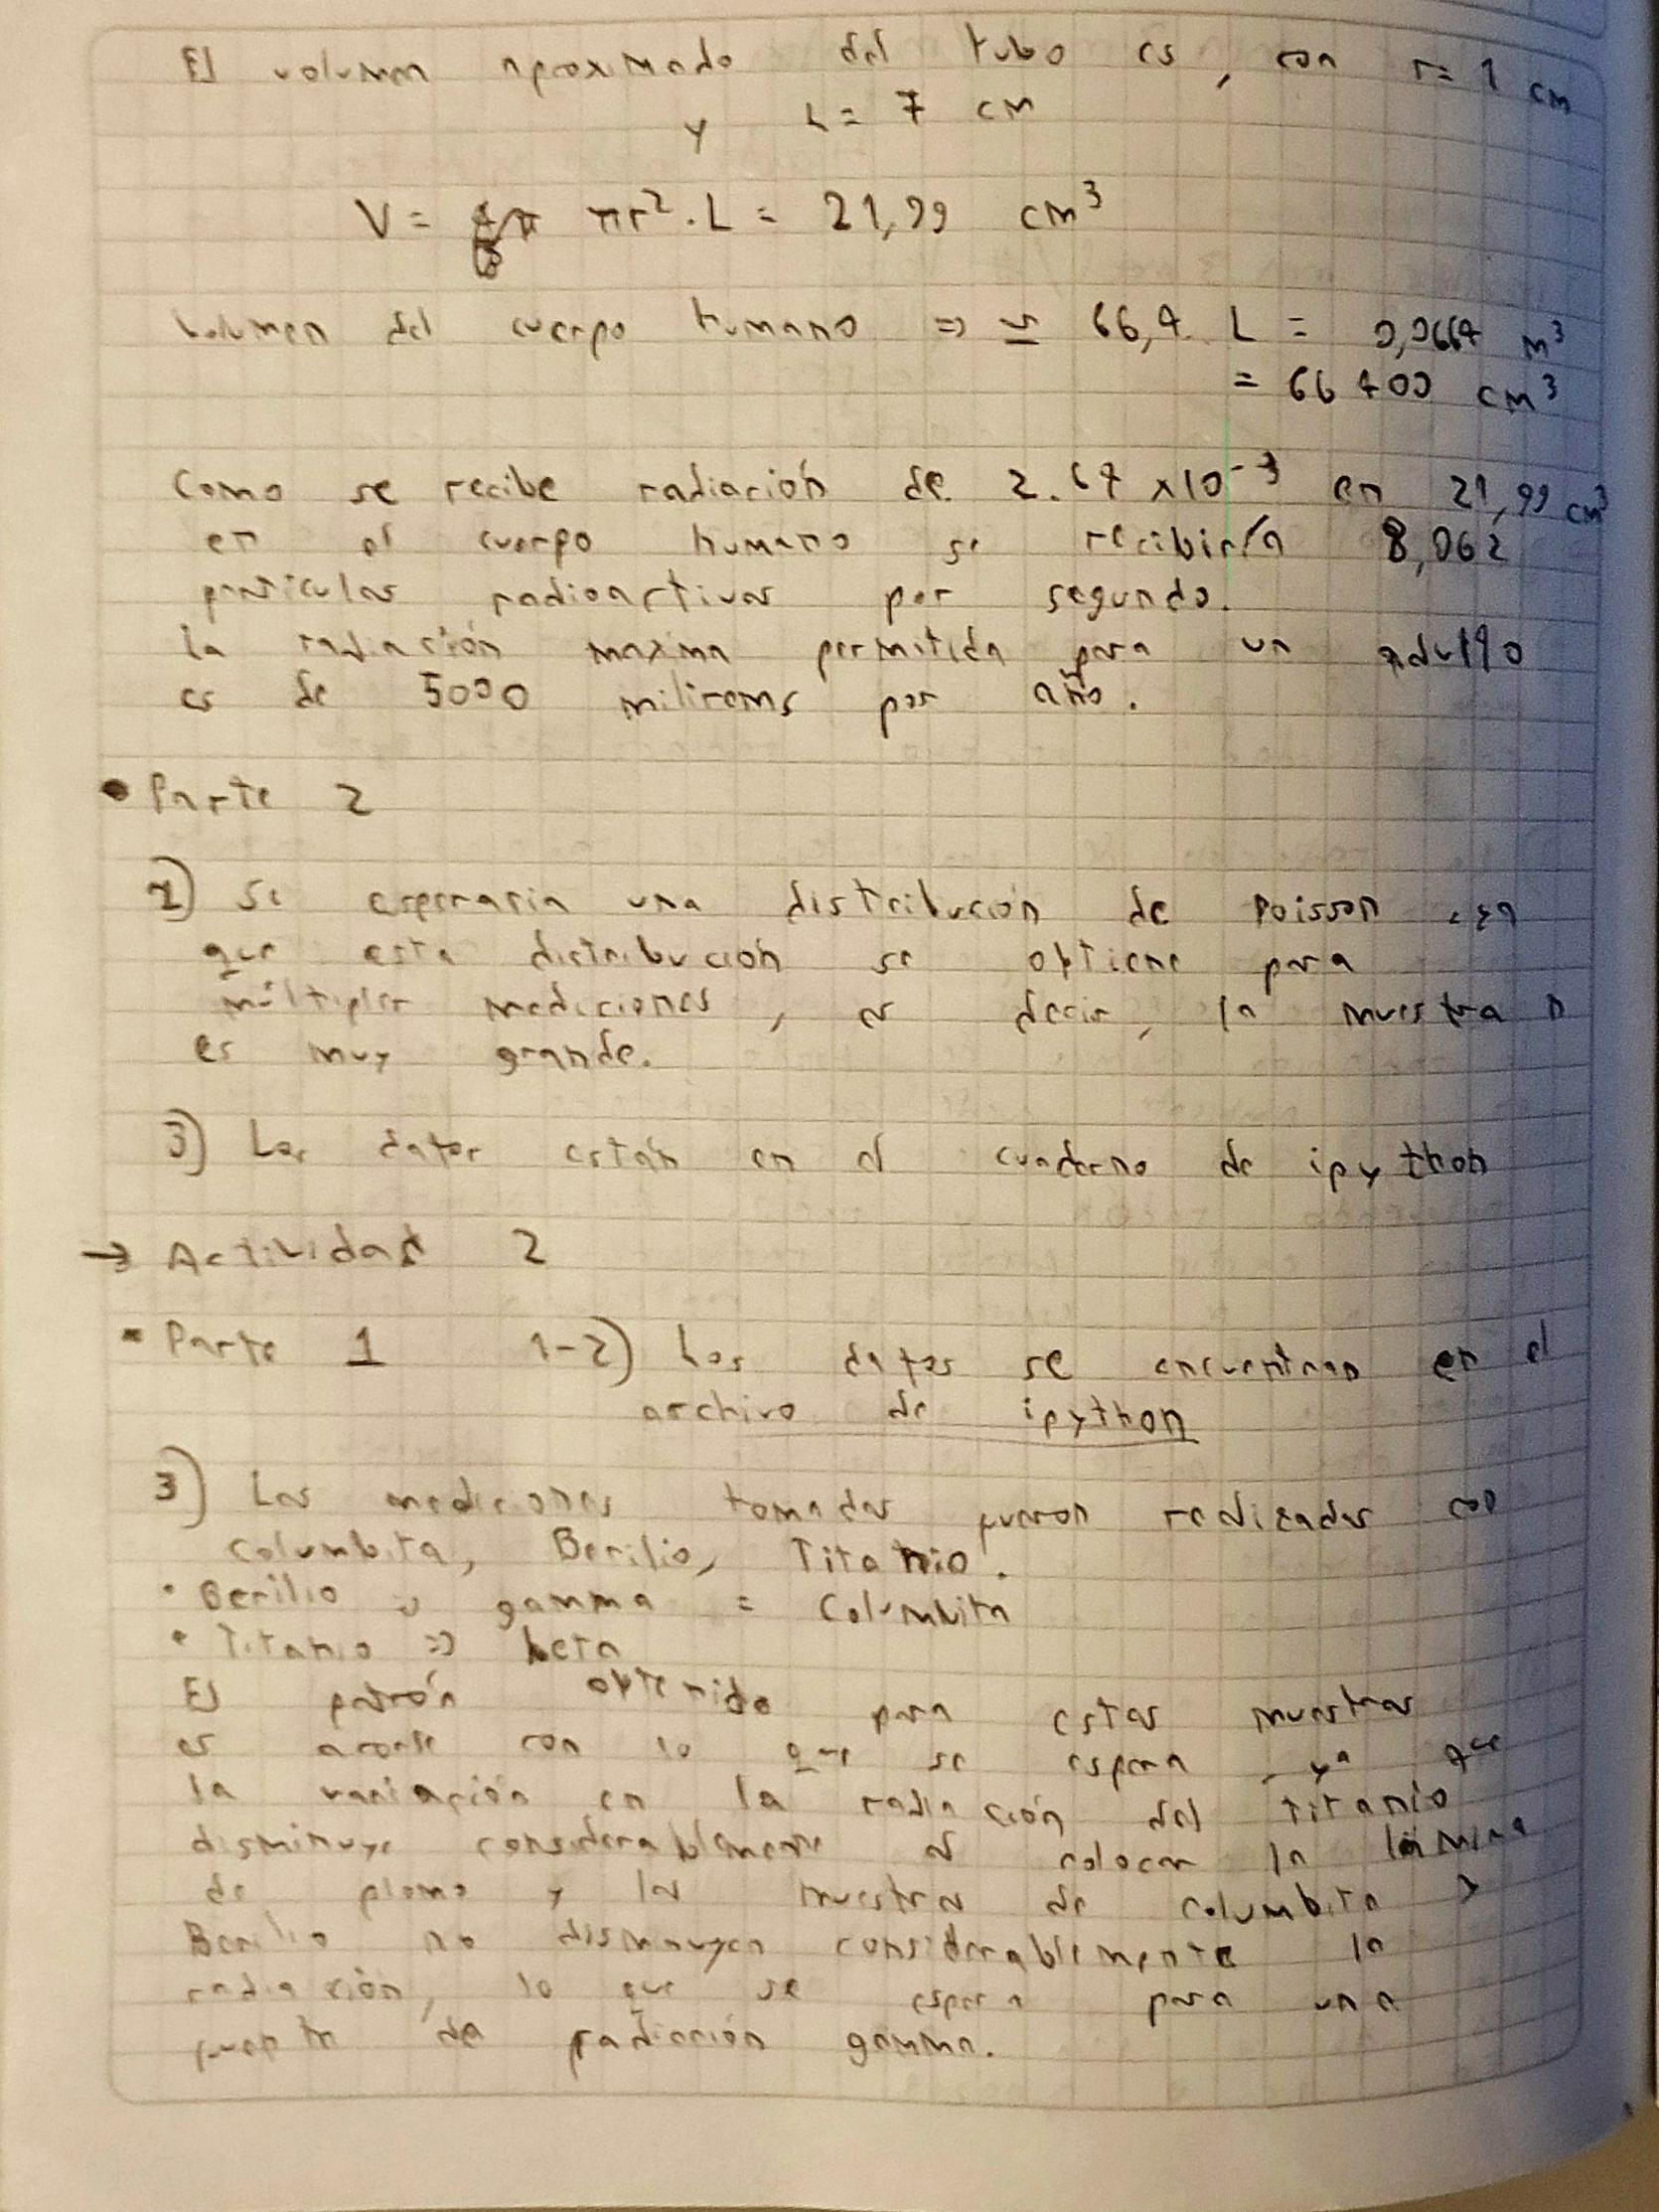 El volumen aproximado del tubo es, con r = 1 cm
y L = 7 cm
V = πr². L = 21,99 cm³
Volumen del cuerpo humano => ≃ 66,4 L = 0,0664 m³
= 66 400 cm³
Como se recibe radiación de 2.67 x10⁻³ en 21,99 cm³
en el cuerpo humano se recibiría 8,062
particulas radioactivas por segundo.
la radiación maxima permitida para un adulto
es de 5000 milirems por año.
• Parte 2
2) Se esperaria una distribución de Poisson ya
que esta distribucion se obtiene para
múltiples mediciones, es decir, la muestra n
es muy grande.
3) Los datos están en el cuaderno de ipython
→ Actividad 2
• Parte 1 1-2) Los datos se encuentran en el
archivo de ipython
3) Las mediciones tomadas fueron realizadas con
Columbita, Berilio, Titanio.
• Berilio gamma = Columbita
• Titanio => beta
El patrón obtenido para estas muestras
es acorde con lo que se espera, ya que
la variación en la radiación del titanio
disminuye considerablemente al colocar la lámina
de plomo y las muestras de columbita y
Berilio no disminuyen considerablemente la
radiación, lo que se espera para una
fuente de radiación gamma.